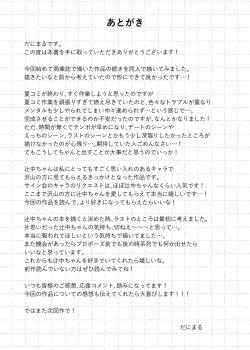 あとがき
だにまるです。
この度は本書を手に取っていただきありがとうございます！
今回始めて商業誌で描いた作品の続きを同人で描いてみました。
描きたいなと前から考えていたので形にできて良かったです…！
夏コミが終わり、すぐ作業しようと思ったのですが
夏コミ作業を頑張りすぎて燃え尽きていたのと、色々なトラブルが重なり
メンタルも少しもってかれ、今回のもすんごい遅い感じで…。
完成させることができるのか不安だったのですが、なんとかなりました！
ただ、時間が無くてテンポが早めになり、デートのシーンや
えっちのシーン、ラストのシーンとかもう少し深堀りしたかったところが
描けなかったのが心残り…。期待していた人ごめんなさい…！
でもこうしてちゃんと出すことが大事だと思うのでいっか！
辻中ちゃんは私にとってもすごく思い入れのあるキャラで
沢山の方に見てもらえるきっかけとなった作品です。
サイン会のキャラのリクエストは、ほぼ辻中ちゃんくらい人気です！
ここまで沢山の方に辻中ちゃんを愛してもらえてて本当に嬉しいです…！
今回の作品を読んで、より辻中ちゃんを好きになってもらえたら嬉しい！
辻中ちゃんの本を描くと決めた時、ラストのところは最初に考えました。
片思いだった辻中ちゃんの気持ち、切ねえ～～～と思って…。
本当に報われてほしいという気持ちで描いてました…！
また機会があったらプロポーズ前でも後の時系列でも何か出せたら
いいなと思っています。
これからも辻中ちゃんを好きでいていただけたら嬉しいな。
前作読んでいない方はぜひ読んでみてね！
いつも皆様のご感想、応援コメント、励みになってます！
今回の作品についての感想も伝えてくれたら大喜びします！！！
ではまた次回作で！
だにまる